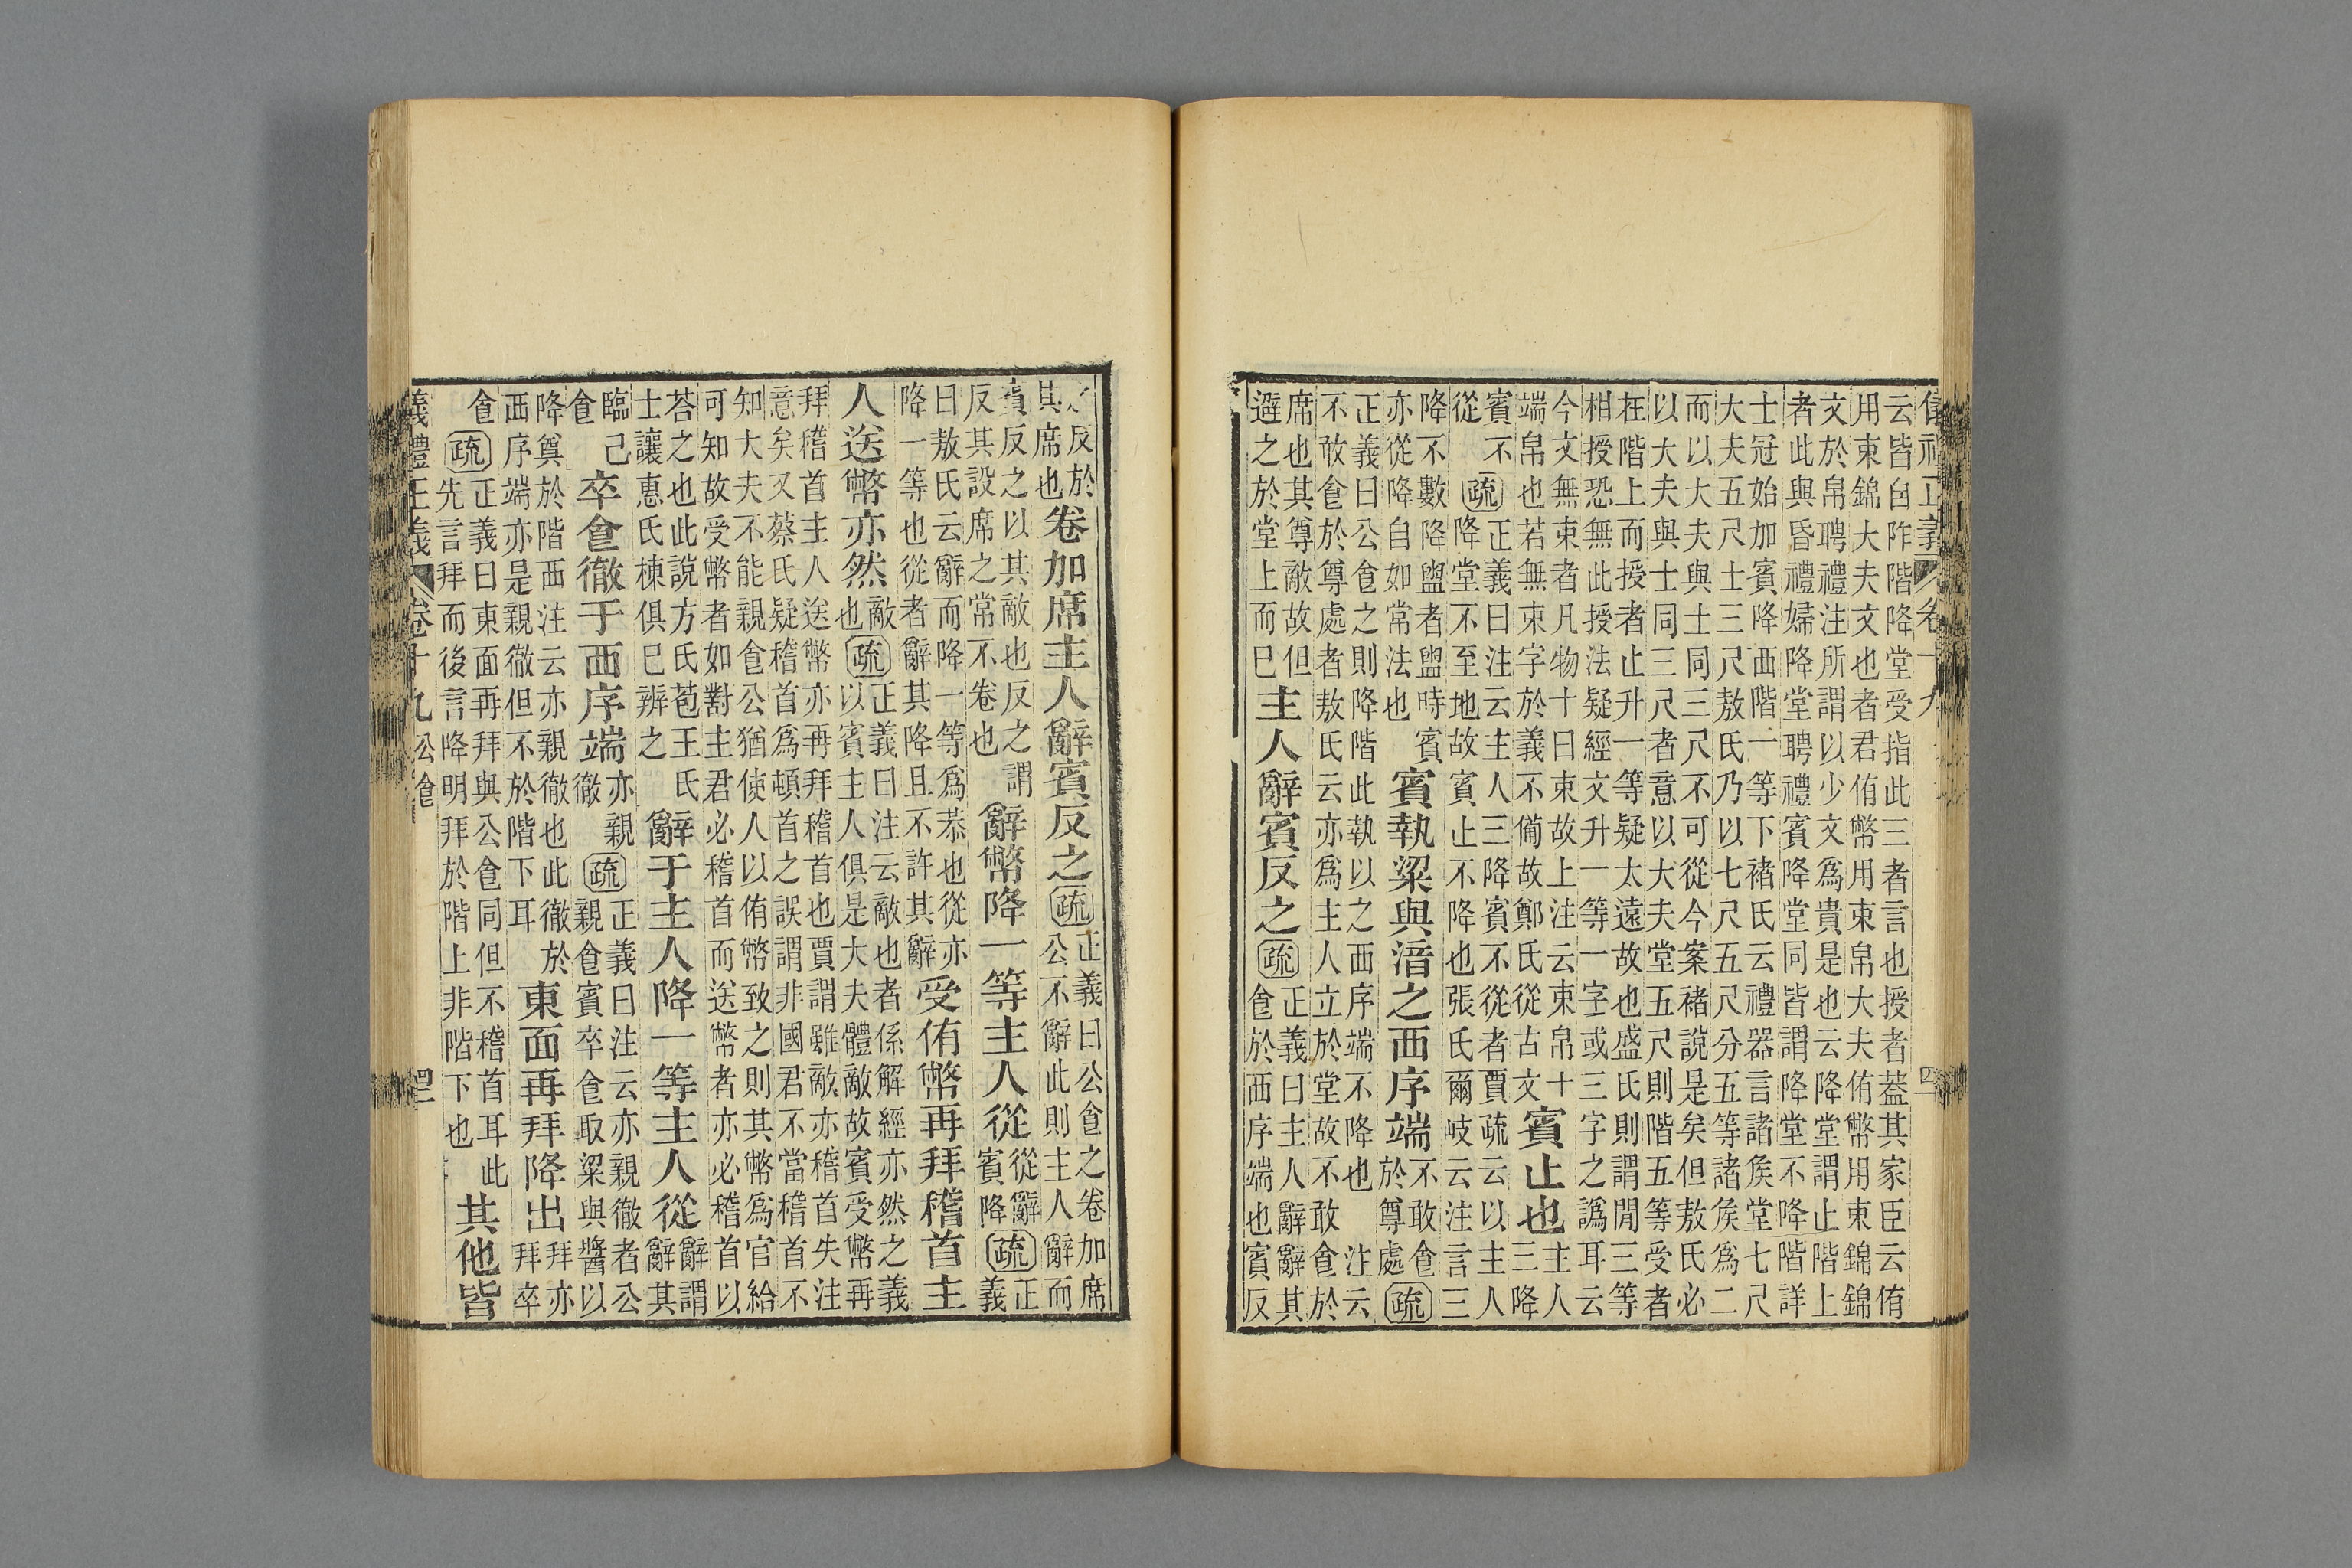 儀禮正義 卷十九
云皆自阼階降堂受指此三者言也授者葢其家臣云侑
用束錦大夫文也者君侑幣用束帛大夫侑幣用束錦錦
文於帛聘禮注所謂以少文爲貴是也云降堂謂止階上
者此與昏禮婦降堂聘禮賓降堂同皆謂降堂不降階詳
士冠始加賓降西階一等下褚氏云禮器言諸矦堂七尺
大夫五尺士三尺敖氏乃以七尺五尺分五等諸矦爲二
而以大夫與士同三尺不可從今案褚說是矣但敖氏必
以大夫與士同三尺者意以大夫堂五尺則階五等受者
在階上而授者止升一等疑太遠故也盛氏則謂閒三等
相授恐無此授法疑經文升一等一字或三字之譌耳云
今文無束者凡物十曰束故上注云束帛十
端帛也若無束字於義不備故鄭氏從古文
賓止也
主人
三降
賓不
從
疏
正義曰注云主人三降賓不從者賈疏云以主人
降堂不至地故賓止不降也張氏爾岐云注言三
降不數降盥者盥時賓
亦從降自如常法也
賓執粱與湆之西序端
不敢食
於尊處
疏
正義曰公食之則降階此執以之西序端不降也 注云
不敢食於尊處者敖氏云亦爲主人立於堂故不敢食於
席也其尊敵故但
避之於堂上而巳
主人辭賓反之
疏
正義曰主人辭辭其
食於西序端也賓反
之反於
其席也
卷加席主人辭賓反之
疏
正義曰公食之卷加席
公不辭此則主人辭而
賓反之以其敵也反之謂
反其設席之常不卷也
辭幣降一等主人從
從辭
賓降
疏
正
義
曰敖氏云辭而降一等爲恭也從亦
降一等也從者辭其降且不許其辭
受侑幣再拜稽首主
人送幣亦然
敵
也
疏
正義曰注云敵也者係解經亦然之義
以賓主人俱是大夫體敵故賓受幣再
拜稽首主人送幣亦再拜稽首也賈謂雖敵亦稽首失注
意矣又蔡氏疑稽首爲頓首之誤謂非國君不當稽首不
知大夫不能親食公猶使人以侑幣致之則其幣爲官給
可知故受幣者如對主君必稽首而送幣者亦必稽首以
荅之也此說方氏苞王氏
士讓惠氏棟俱巳辨之
辭于主人降一等主人從
辭謂
辭其
臨己
食
卒食徹于西序端
亦親
徹
疏
正義曰注云亦親徹者公
親食賓卒食取粱與醬以
降奠於階西注云亦親徹也此徹於
西序端亦是親徹但不於階下耳
東面再拜降出
拜亦
拜卒
食
疏
正義曰東面再拜與公食同但不稽首耳此
先言拜而後言降明拜於階上非階下也
其他皆
義禮正義 卷十九 公食